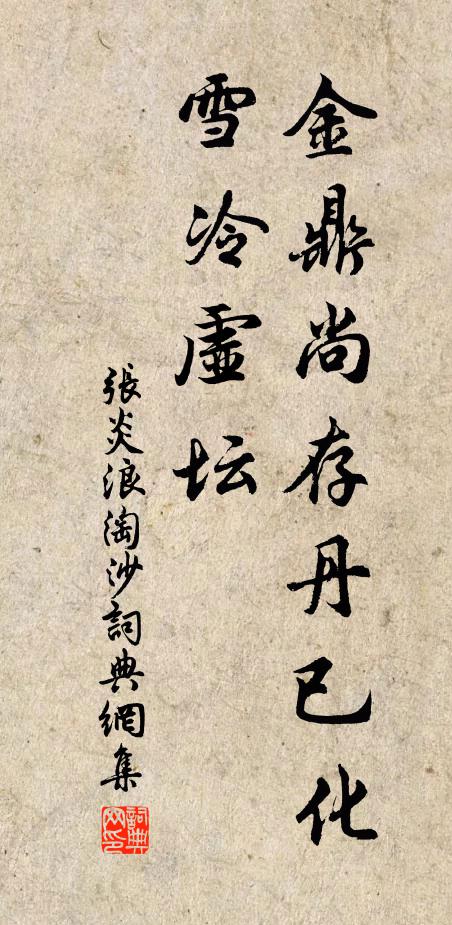 金鼎尚存丹已化
雪冷虚坛
張炎浪淘沙詞典網集
詞典网印